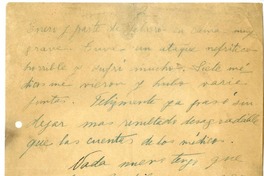 Enero y parte de febrero en cama muy
grave. Tuve un ataque nefrítico
horrible y sufrí mucho. Siete mé
dicos me vieron y hubo varia
juntas. Felizmente ya pasó sin
dejar mas resultado desagradable
que las cuentas de los medicos.
Nada nuevo tengo que